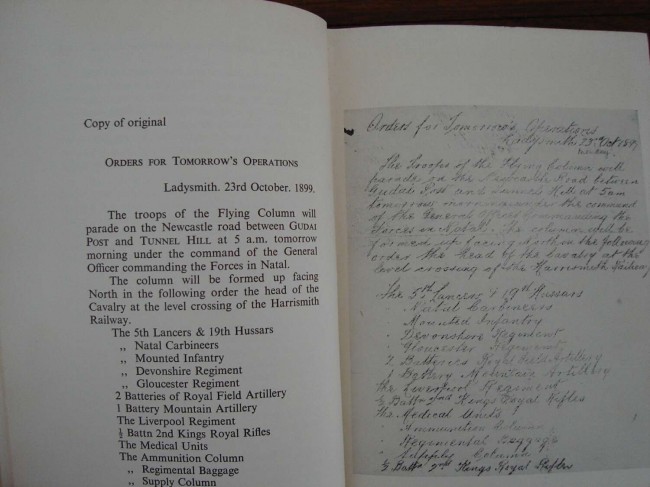 Copy of original
ORDERS FOR TOMORROW'S OPERATIONS
Ladysmith. 23rd October. 1899.
The troops of the Flying Column will
parade on the Newcastle road between GUDAI
POST and TUNNEL HILL at 5 a.m. tomorrow
morning under the command of the General
Officer commanding the Forces in Natal.
The column will be formed up facing
North in the following order the head of the
Cavalry at the level crossing of the Harrismith
Railway.
The 5th Lancers & 19th Hussars
„ Natal Carbineers
„ Mounted Infantry
„ Devonshire Regiment
„ Gloucester Regiment
2 Batteries of Royal Field Artillery
1 Battery Mountain Artillery
The Liverpool Regiment
½ Battn 2nd Kings Royal Rifles
The Medical Units
The Ammunition Column
„ Regimental Baggage
„ Supply Column
Orders for Tomorrow's Operations
Ladysmith 23rd Oct 1899
The Troops of the Flying Column will
parade on the Newcastle Road between
Gudai Post and Tunnel Hill at 5 am
tomorrow morning under the command
of the General Officer Commanding the
Forces in Natal. The column will be
formed up facing North in the following
order the head of the Cavalry at the
level crossing of the Harrismith Railway
The 5th Lancers & 19th Hussars
" Natal Carbineers
" Mounted Infantry
" Devonshire Regiment
" Gloucester Regiment
2 Batteries Field Artillery
1 Battery Mountain Artillery
The Liverpool Regiment
½ Battn 2nd Kings Royal Rifles
The Medical Units
" Ammunition Column
" Regimental Baggage
" Supply Column
½ Battn 2nd Kings Royal Rifles